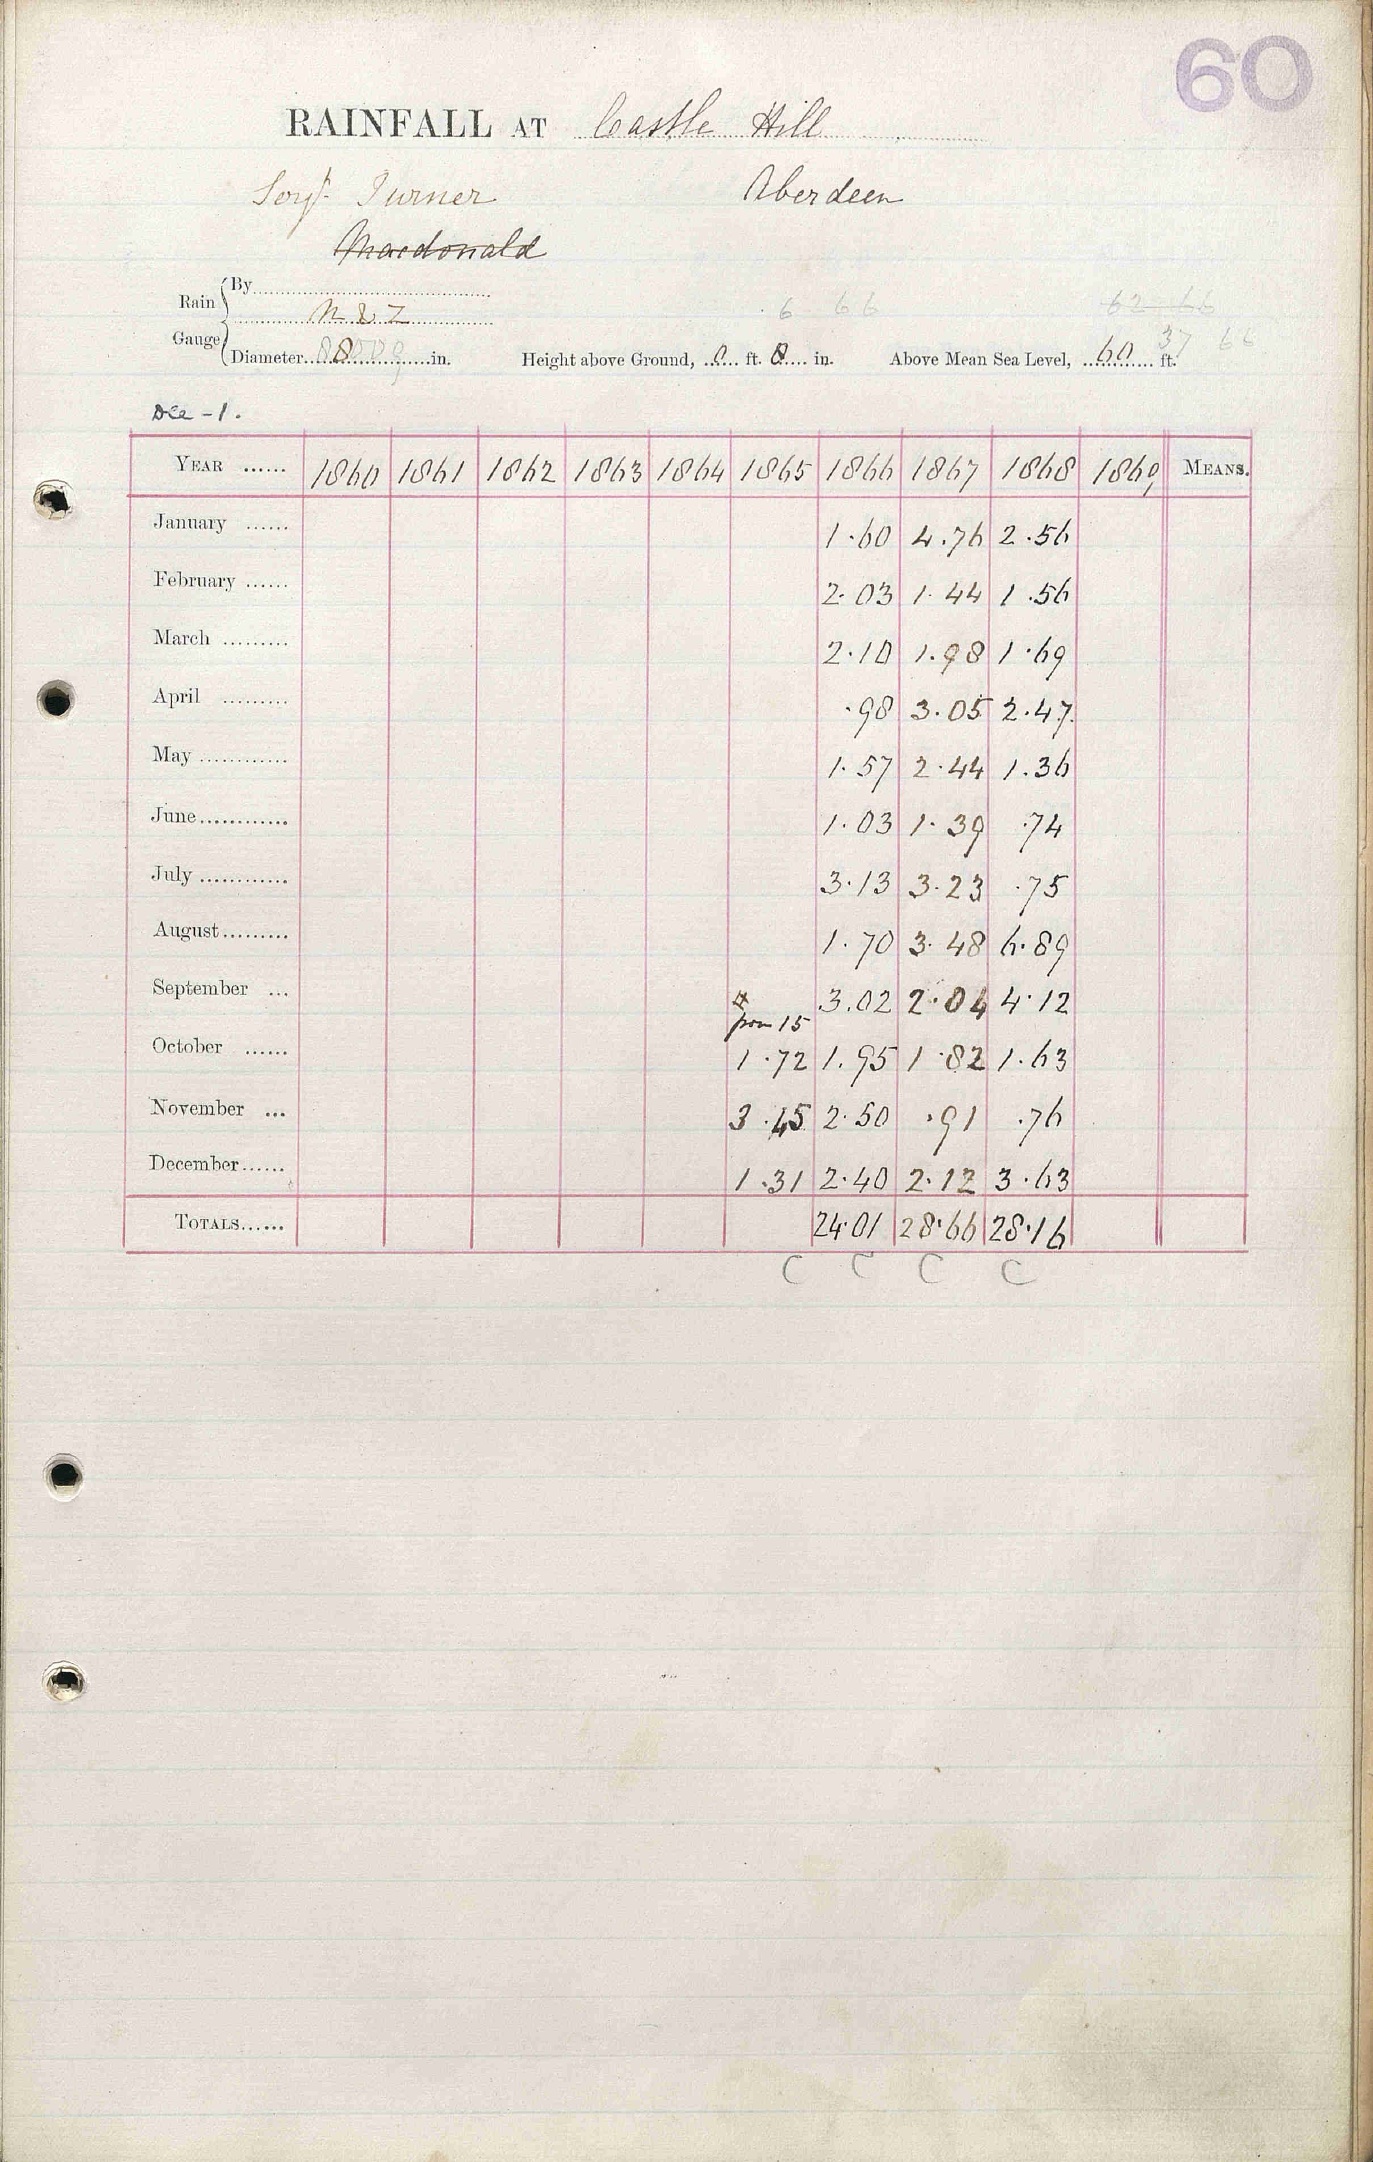 60
RAINFALL AT Castle Hill
Sergt. Turner Aberdeen
Macdonald
Rain Gauge By
N & Z
6 66 62 66
Diameter 8 in. Height above Ground, 0 ft. 8 in. Above Mean Sea Level, 60 ft. 37 66
Dec - 1.
YEAR ...... 1860 1861 1862 1863 1864 1865 1866 1867 1868 1869 MEANS.
January ...... 1.60 4.76 2.56
February ...... 2.03 1.44 1.56
March ......... 2.10 1.98 1.69
April ......... .98 3.05 2.47
May ............ 1.57 2.44 1.36
June............ 1.03 1.39 .74
July ............ 3.13 3.23 .75
August......... 1.70 3.48 6.89
September ... 3.02 2.04 4.12
from 15
October ...... 1.72 1.95 1.82 1.63
November ... 3.45 2.50 .91 .76
December...... 1.31 2.40 2.12 3.63
TOTALS...... 24.01 28.66 28.16
C C C C